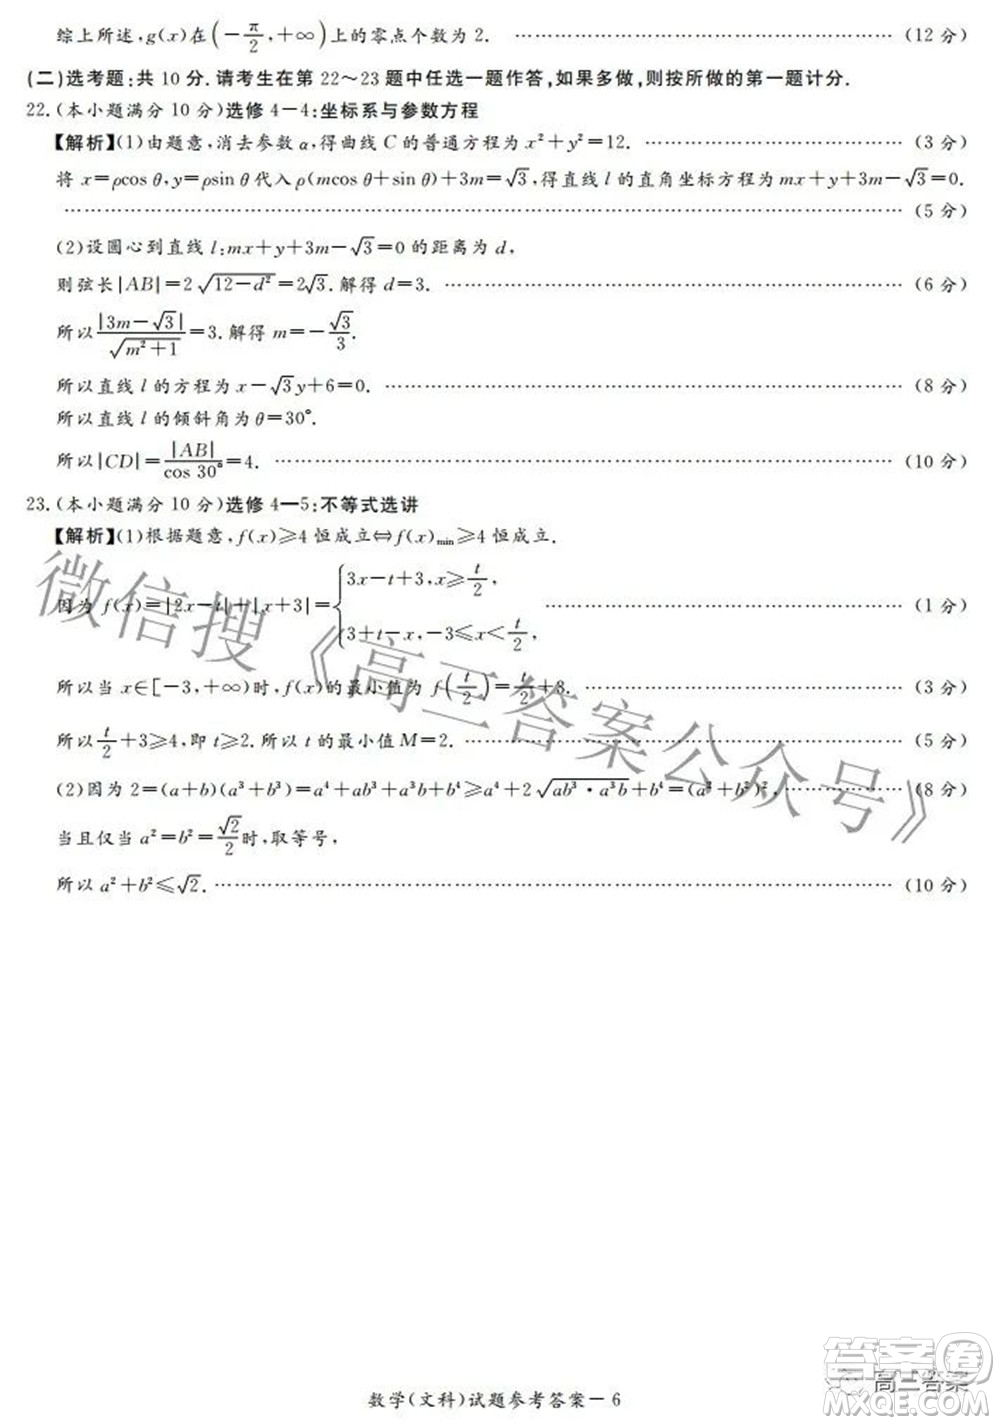 综上所述,g(x)在(-π/2,+∞)上的零点个数为2. ……(12分)
(二)选考题:共10分.请考生在第22~23题中任选一题作答,如果多做,则按所做的第一题计分.
22.(本小题满分10分)选修4-4:坐标系与参数方程
【解析】(1)由题意,消去参数α,得曲线C的普通方程为x²+y²=12. ……(3分)
将x=ρcosθ,y=ρsinθ代入ρ(mcosθ+sinθ)+3m=√3,得直线l的直角坐标方程为mx+y+3m-√3=0.
……(5分)
(2)设圆心到直线l:mx+y+3m-√3=0的距离为d,
则弦长|AB|=2√(12-d²)=2√3.解得d=3. ……(6分)
所以|3m-√3|/√(m²+1)=3.解得m=-√3/3.
所以直线l的方程为x-√3y+6=0. ……(8分)
所以直线l的倾斜角为θ=30°.
所以|CD|=|AB|/cos 30°=4. ……(10分)
23.(本小题满分10分)选修4—5:不等式选讲
【解析】(1)根据题意,f(x)≥4恒成立⇔f(x)min≥4恒成立.
因为f(x)=|2x-t|+|x+3|={3x-t+3,x≥t/2, ……(1分)
3+t-x,-3≤x<t/2,
所以当x∈[-3,+∞)时,f(x)的最小值为f(t/2)=t/2+3. ……(3分)
所以t/2+3≥4,即t≥2.所以t的最小值M=2. ……(5分)
(2)因为2=(a+b)(a³+b³)=a⁴+ab³+a³b+b⁴≥a⁴+2√(ab³·a³b)+b⁴=(a²+b²)², ……(8分)
当且仅当a²=b²=√2/2时,取等号,
所以a²+b²≤√2. ……(10分)
微信搜《高三答案公众号》
数学(文科)试题参考答案-6
高三答案
答案圈
MXQE.COM